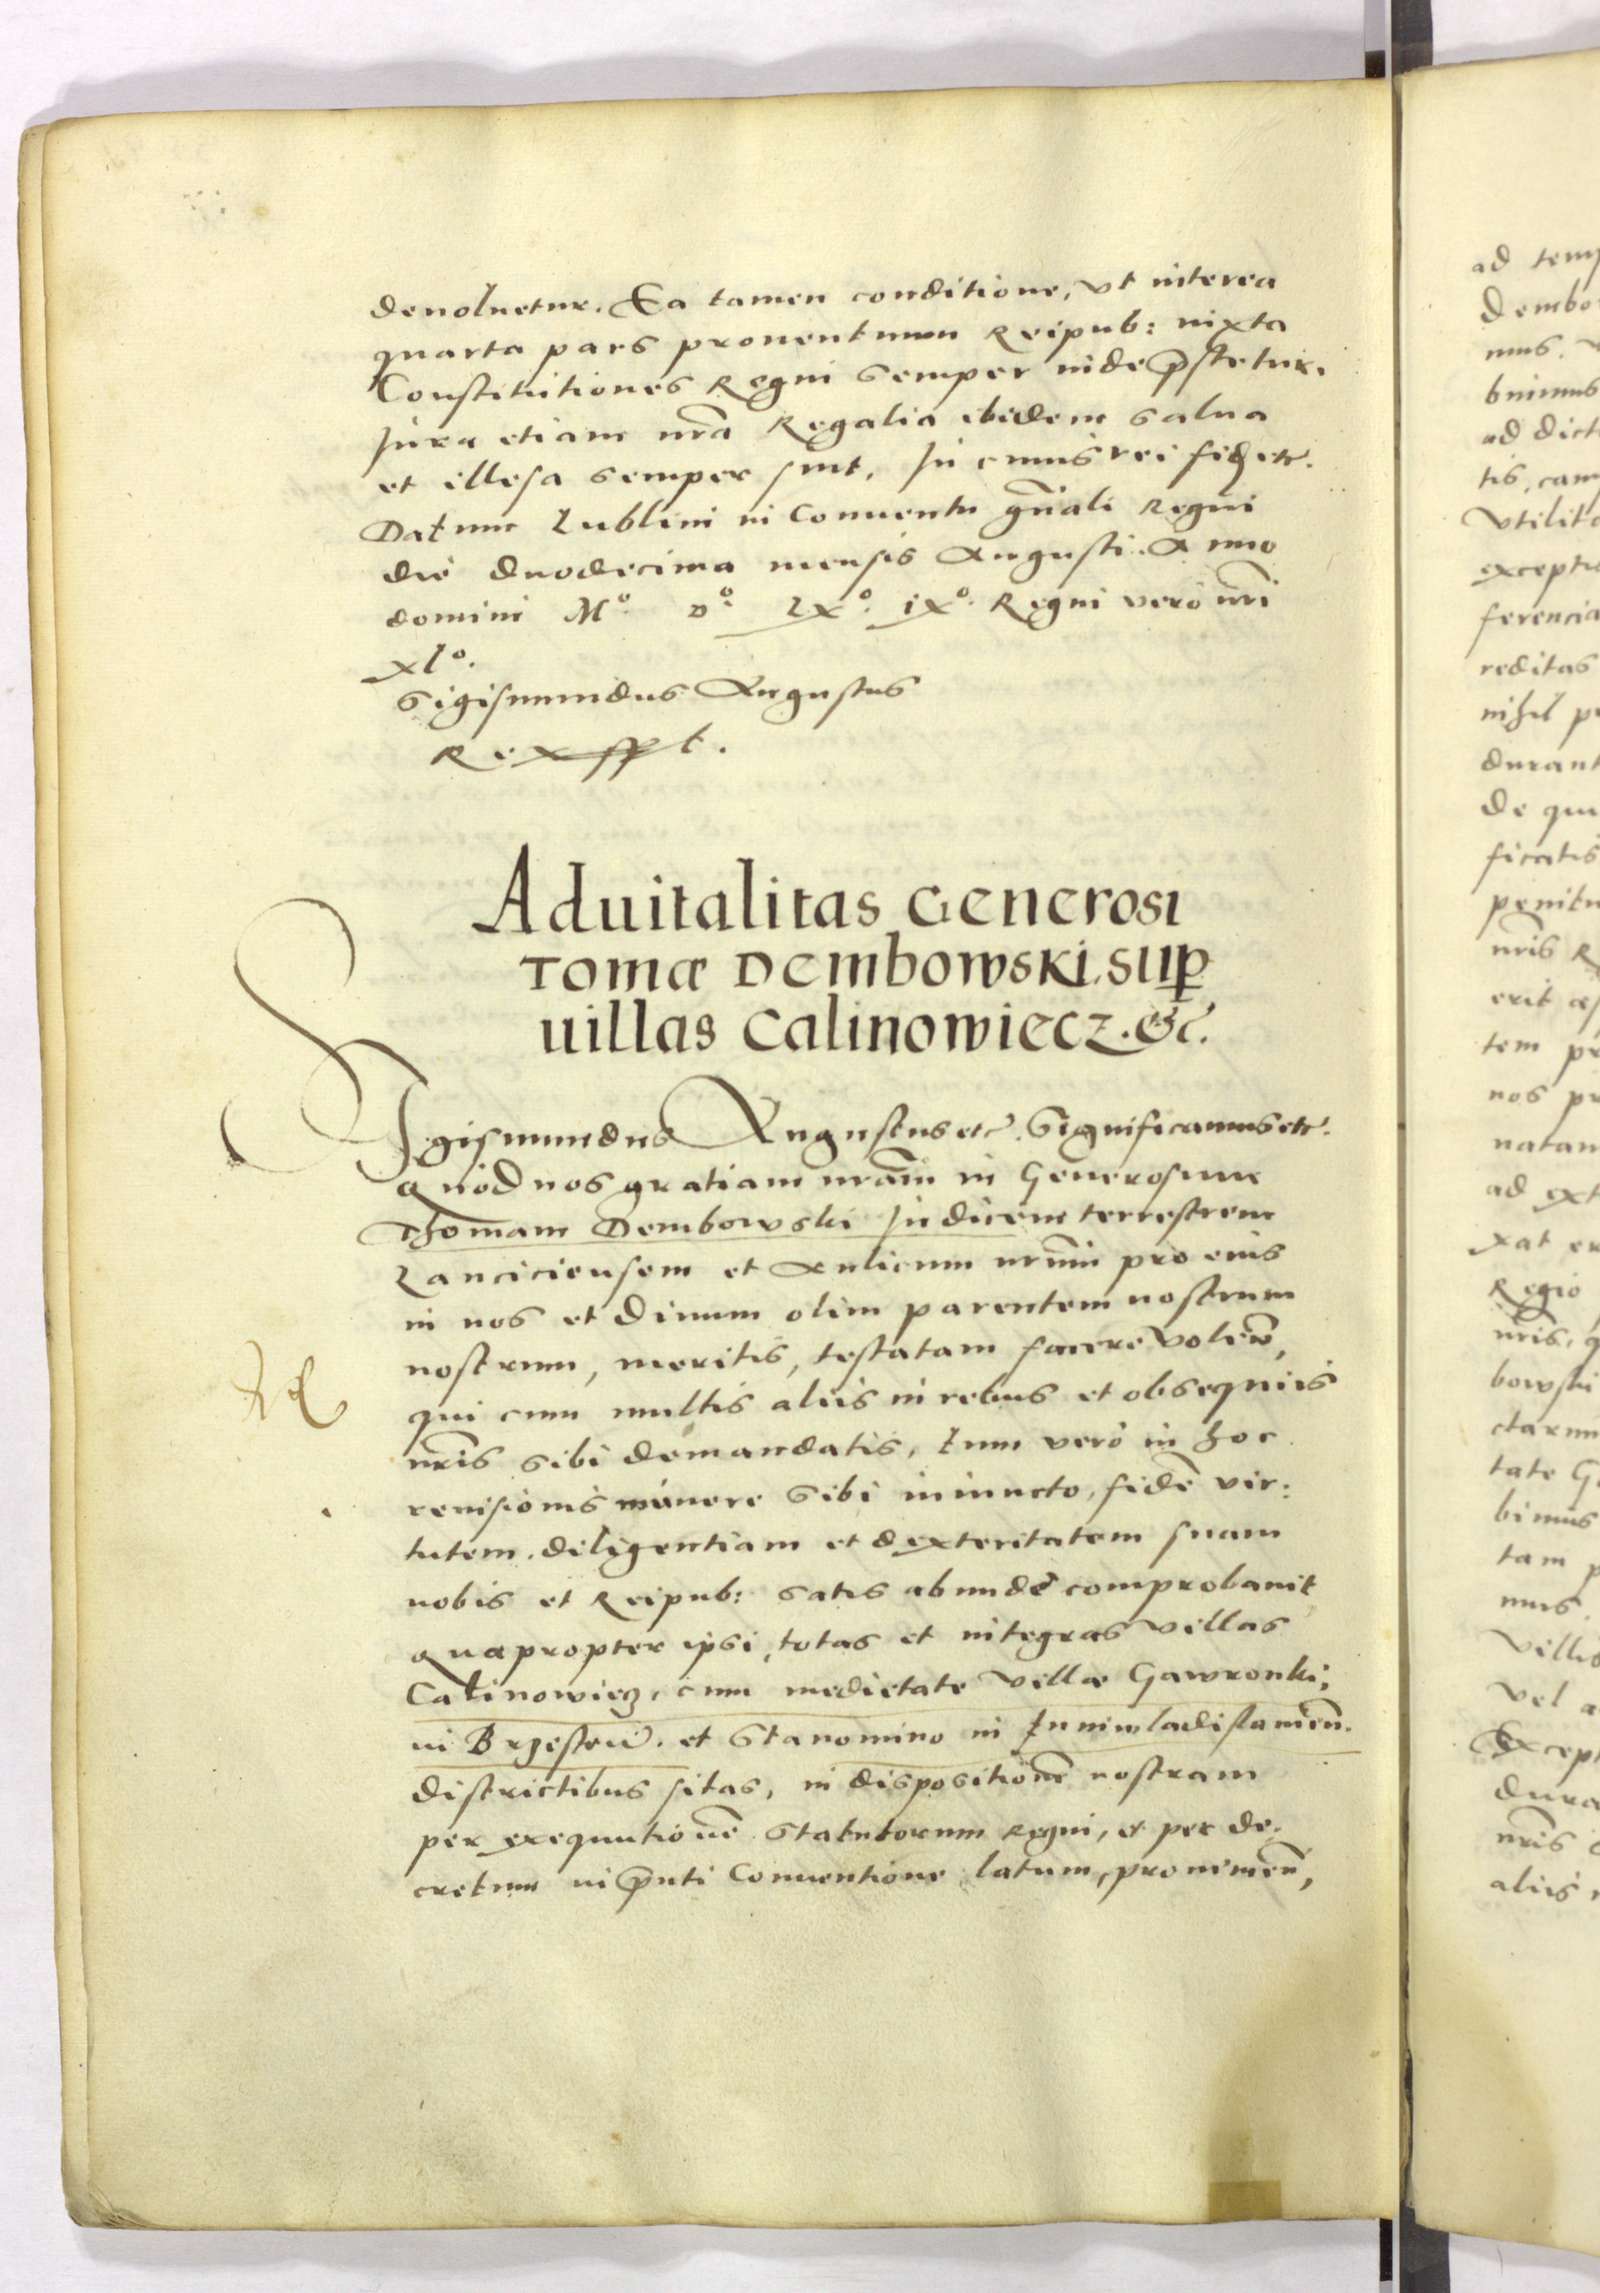 deuoluetur. Ea tamen conditione, vt interea
quarta pars prouentuum Reipub: iuxta
Constitutiones Regni semper inde p̄stetur.
Jura etiam nr̄a Regalia ibidem salua
et illesa semper sint. In cuius rei fidē etc.
Datum Lublini in Conuentu gn̄ali Regni
die duodecima mensis Augusti. Anno
domini Mº. Dº. LXº. iXº. Regni vero nr̄i
xlº.
Sigismundus Augustus
Rex sspt.
Aduitalitas Generosi
Tomæ Dembowski. sup
uillas Calinowiecz. &c.
Sigismundus Augustus etc. Significamus etc.
Quod nos gratiam nr̄am in Generosum
Thomam Dembowski Judicem terrestrem
Lanciciensem et Aulicum nr̄um pro eius
in nos et Diuum olim parentem nostrum
nostrum, meritis, testatam facere volen̄,
qui cum multis aliis in rebus et obsequiis
nr̄is sibi demandatis, tum vero in hoc
reuisionis munere sibi iniuncto, fidē vir:
tutem, diligentiam et dexteritatem suam
nobis et Reipub: satis abundè comprobauit
Quapropter ipsi, totas et integras villas
Calinowiecz, cum medietate villæ Gawronki,
in Brzesteń. et Stanomino in Juniwladislauien̄.
districtibus sitas, in dispositionē nostram
per exequutionē Statutorum Regni, et per de:
cretum in p̄nti Conuentione latum, prouenien̄,
ad temp
Dembo
mus.
bimus
ad dict
tis, cam
vtilita
exceptio
ferencia
reditas
nihil p
durant
De qui
ficatis
penitu
nr̄is R
erit æs
tem pr
nos pr
natam
ad ext
xat er
Regio
nr̄is, q
bowski
ctarum
tate Ga
bimus
tam p
mus
villis
vel a
Except
dura
nr̄is
aliis